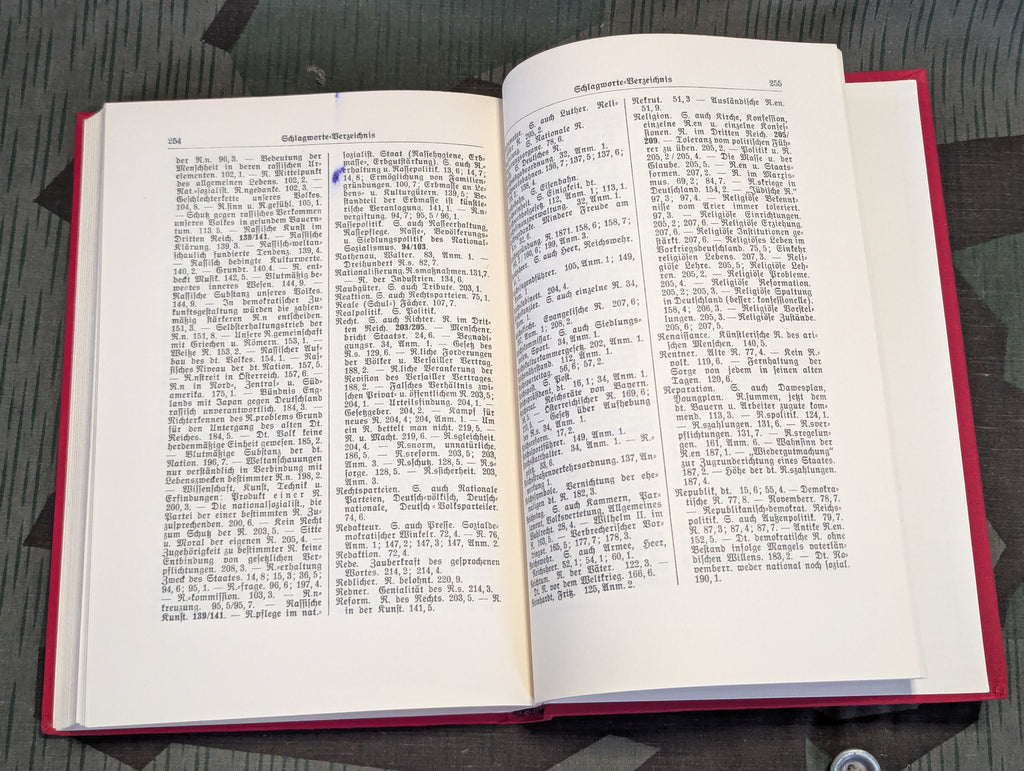 254
Schlagworte-Verzeichnis
der R.n. 96,3. — Bedeutung der
Menschheit in deren rassischen Ur-
elementen. 102,1. — R. Mittelpunkt
des allgemeinen Lebens. 102,2. —
Nat.-sozialist. R.ngedanke. 102,3. —
Geschlechterkette unseres Volkes.
104,8. — R.sinn u. R.gefühl. 105,1.
— Schutz gegen rassisches Verkommen
unseres Volkes in gesundem Bauern-
tum. 113,5. — Rassische Kunst im
Dritten Reich. 139/141. — Rassische
Klärung. 139,3. — Rassisch-weltan-
schaulich fundierte Tendenz. 139,4.
— Rassisch bedingte Kulturwerte.
140,2. — Grundr. 140,4. — R. ent-
deckt Musik. 142,5. — Blutmäßig be-
wertes inneres Wesen. 144,9. —
Rassische Substanz unseres Volkes.
144,9. — In demokratischer Zu-
kunftsgestaltung würden die zahlen-
mäßig stärkeren R.n entscheiden.
151,3. — Selbsterhaltungstrieb der
R.n. 151,8. — Unsre R.gemeinschaft
mit Griechen u. Römern. 153,1. —
Weiße R. 153,2. — Rassischer Auf-
bau des dt. Volkes. 154,1. — Ras-
sisches Niveau der dt. Nation. 157,5.
— R.nstreit in Österreich. 157,6. —
R.n in Nord-, Zentral- u. Süd-
amerika. 175,1. — Bündnis Eng-
lands mit Japan gegen Deutschland
rassisch unverantwortlich. 184,3. —
Nichterkennen des R.nproblems Grund
für den Untergang des alten Dt.
Reiches. 184,5. — Dt. Volk keine
herdenmäßige Einheit gewesen. 185,2.
— Blutmäßige Substanz der dt.
Nation. 196,7. — Weltanschauungen
nur verständlich in Verbindung mit
Lebenszwecken bestimmter R.n. 198,2.
— Wissenschaft, Kunst, Technik u.
Erfindungen: Produkt einer R.
200,3. — Die nationalsozialist., die
Partei einer bestimmten R. Zu-
zusprechenden. 200,6. — Kein Recht
zum Schutz der R. 203,4. — Sitte
u. Moral der eigenen R. 205,4. —
Zugehörigkeit zu bestimmter R. keine
Entbindung von gesetzlichen Ver-
pflichtungen. 208,3. — R.nerhaltung
Zweck des Staates. 14,8; 15,3; 36,5;
94,6; 95,1. — R.nfrage. 96,6; 197,4.
— R.-kommission. 103,3. — R.n-
kreuzung. 95,5/95,7. — Rassische
Kunst. 139/141. — R.pflege im nat.-
sozialist. Staat (Rassehygiene, Erb-
masse-, Erbgutstärkung). S. auch R.-
erhaltung u. Rassepolitik. 13,6; 14,7;
14,8; Ermöglichung von Familien-
gründungen. 100,7; Erbmasse an Le-
bens- u. Kulturgütern. 139,5; Be-
standteil der Erbmasse ist künstle-
rische Veranlagung. 141,1. — R.n-
vergiftung. 94,7; 95,5/96,1.
Rassepolitik. S. auch Rasseerhaltung,
Rassepflege, Rasse-, Bevölkerungs-
u. Siedlungspolitik des National-
Sozialismus. 94/103.
Rathenau, Walter. 83, Anm. 1. —
Dreihundert R.s. 82,7.
Rationalisierung. R.smaßnahmen. 131,7.
— R. der Industrien. 134,6.
Raubgüter. S. auch Tribute. 203,1.
Reaktion. S. auch Rechtsparteien. 75,1.
Reale (Schul-) Fächer. 107,7.
Realpolitik. S. Politik.
Recht. S. auch Richter. R. im Drit-
ten Reich. 203/205. — Menschenr.
bricht Staatsr. 24,6. — Begnadi-
gungsr. 34, Anm. 1. — Gesetz des
R.s. 129,6. — R.liche Forderungen
der Völker u. Versailler Vertrag.
188,2. — R.liche Verankerung der
Revision des Versailler Vertrages.
188,2. — Falsches Verhältnis zwi-
schen Privat- u. öffentlichem R. 203,5;
204,1. — Urteilsfindung. 204,1. —
Gesetzgeber. 204,2. — Kampf für
neues R. 204,4; 204, Anm. 1. — Um
R. bettelt man nicht. 219,5. —
R. u. Macht. 219,6. — R.sgleichheit.
204,4. — R.snorm, unnatürliche.
186,5. — R.sreform. 203,5; 203,
Anm. 3. — R.sschutz. 128,5. — R.s-
sorge. 128,5. — R.ssicherheit. 203,
Anm. 3.
Rechtsparteien. S. auch Nationale
Parteien, Deutsch-völkisch, Deutsch-
nationale, Deutsch-Volksparteiler.
74,6.
Redakteur. S. auch Presse. Sozialde-
mokratischer Winkelr. 72,4. — R. 76,
Anm. 1; 147,2; 147,3; 147, Anm. 2.
Redaktion. 72,4.
Rede. Zauberkraft des gesprochenen
Wortes. 214,2; 214,4.
Redlicher. R. belohnt. 220,9.
Redner. Genialität des R.s. 214,3.
Reform. R. des Rechts. 203,5. — R.
in der Kunst. 141,5.
Schlagworte-Verzeichnis
255
S. auch Luther. Reli-
205,2.
S. Nationale R.
78,6.
32, Anm. 1.
136,7; 137,5; 137,6;
S. Eisenbahn.
S. Einigkeit, dt.
112, Anm. 1; 113,1.
32, Anm. 1.
Mindere Freude am
R. 1871. 158,6; 158,7;
160,6; 199, Anm. 3.
S. auch Heer, Reichswehr.
105, Anm. 1; 149,
204,4.
S. auch einzelne R. 34,
Evangelische R. 207,6;
Anm. 1; 208,2.
S. auch Siedlungs-
Sport. 34, Anm. 1.
202, Anm. 1.
112, Anm. 1.
56,6; 57,2.
S. Post.
dt. 16,1; 34, Anm. 1.
Reichsräte von Bayern.
Österreichischer R. 169,6;
Gesetz über Aufhebung
des R.s. 34, Anm. 1.
17,2.
149, Anm. 1.
34, Anm. 1. — R.-
33,6.
137, An-
merkung 1.
Vernichtung der ehe-
maligen dt. R. 182,3.
S. auch Kammern, Par-
lament, Volksvertretung, Allgemeines
Wahlrecht. 28,4. — Wilhelm II. im
R. 163,5. — Verbrecherischer Vor-
165,5; 177,7; 178,3.
S. auch Armee, Heer,
52,1; 54,1; 60,1.
R. der Väter. 122,3. —
Dt. R. vor dem Weltkrieg. 166,6.
Reinhardt, Fritz. 125, Anm. 2.
Rekrut. 51,3 — Ausländische R.en.
51,9.
Religion. S. auch Kirche, Konfession,
einzelne R.en u. einzelne Konfes-
sionen. R. im Dritten Reich. 205/
209. — Toleranz vom politischen Füh-
rer zu üben. 205,2. — Politik u. R.
205,2/205,4. — Die Masse u. der
Glaube. 205,3. — R.en u. Staats-
formen. 207,2. — R. im Marxis-
mus. 69,2; 84,7. — R.skriege in
Deutschland. 154,2. — „Jüdische R."
97,3; 97,4. — Religiöse Bekennt-
nisse vom Arier immer toleriert.
97,3. — Religiöse Einrichtungen.
205,2; 207,6. — Religiöse Erziehung.
207,6. — Religiöse Institutionen ge-
stärkt. 207,6. — Religiöses Leben im
Vorkriegsdeutschland. 75,5; Einkehr
religiösen Lebens. 207,3. — Reli-
giöse Lehre. 205,5; Religiöse Leh-
ren. 205,2. — Religiöse Probleme.
205,4. — Religiöse Reformation.
205,2; 205,3. — Religiöse Spaltung
in Deutschland (besser: konfessionelle).
158,4; 206,3. — Religiöse Vorstel-
lungen. 205,3. — Religiöse Zustände.
205,6; 207,5.
Renaissance. Künstlerische R. des ari-
schen Menschen. 140,5.
Rentner. Alte R. 77,4. — Kein R.-
volk. 119,6. — Fernhaltung der
Sorge von jedem in seinen alten
Tagen. 120,6.
Reparation. S. auch Dawesplan,
Youngplan. R.summen, jetzt dem
dt. Bauern u. Arbeiter zugute kom-
mend. 113,3. — R.spolitik. 124,1.
— R.szahlungen. 131,6. — R.sver-
pflichtungen. 131,7. — R.sregelun-
gen. 161, Anm. 6. — Wahnsinn der
R.en 187,1. — „Wiedergutmachung"
zur Zugrunderichtung eines Staates.
187,2. — Höhe der dt. R.szahlungen.
187,4.
Republik, dt. 15,6; 55,4. — Demokra-
tische R. 77,8. — Novemberr. 78,7.
— Republikanisch-demokrat. Reichs-
politik. S. auch Außenpolitik. 79,7.
R. 87,3; 87,4; 87,7. — Antike R.en.
152,5. — Dt. demokratische R. ohne
Bestand infolge Mangels vaterlän-
dischen Willens. 183,2. — Dt. No-
vemberr. weder national noch sozial.
190,1.